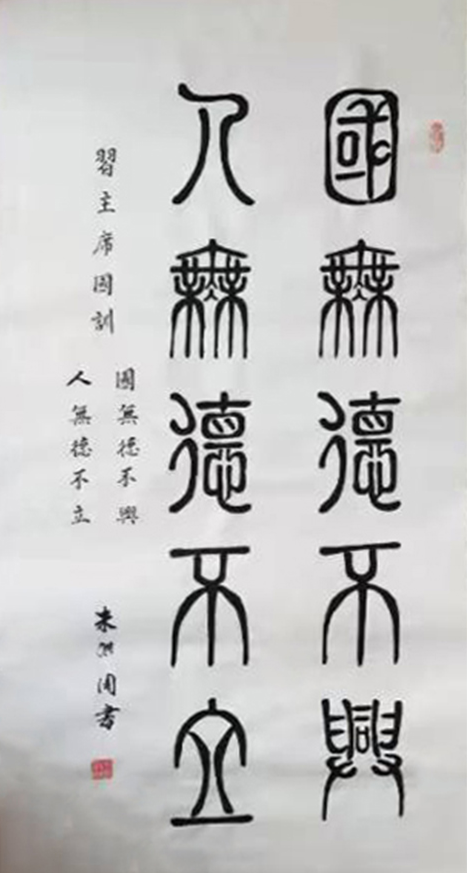 國無德不興
人無德不立
習主席國訓
國無德不興
人無德不立
朱 周書